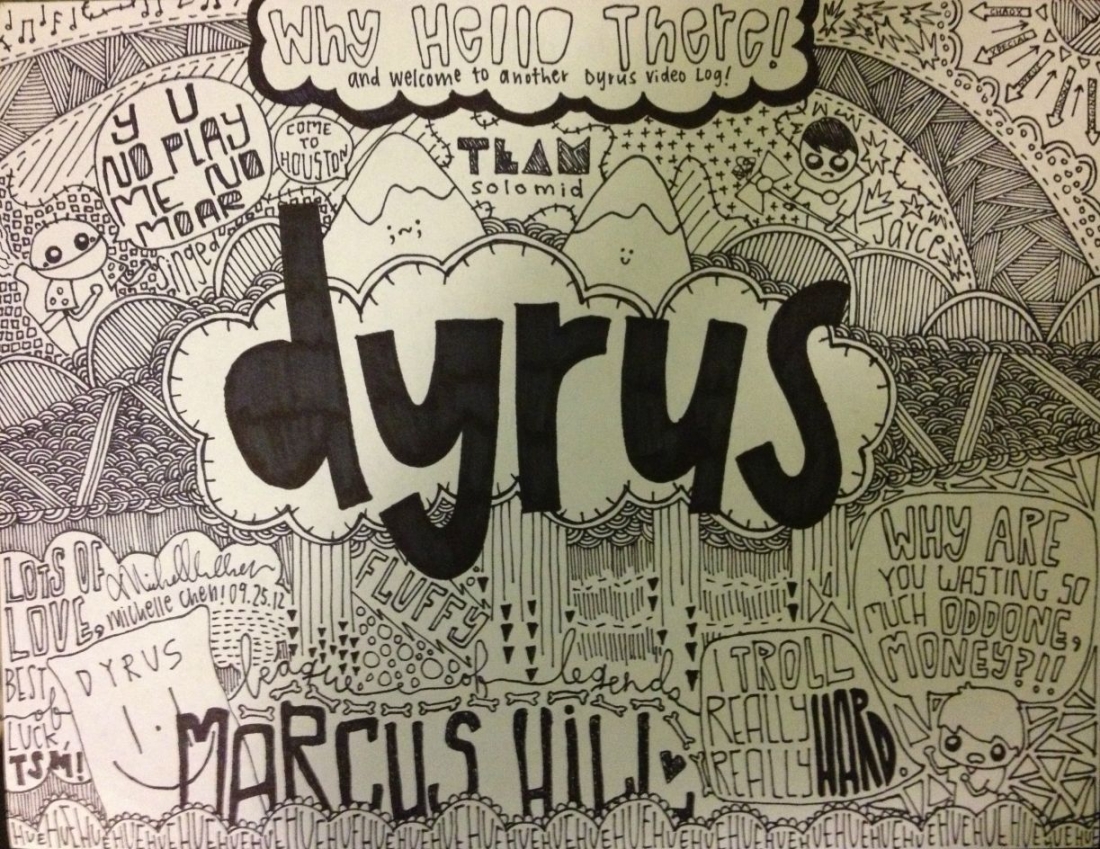 Why Hello There!
and welcome to another Dyrus Video Log!
CHAOX
XPECIAL
Y U
NO PLAY
ME NO
MOAR
COME
TO
HOUSTON
TEAM
solomid
singed
jayce
;~;
dyrus
LOTS OF
LOVE,
Michelle Chen! 09.25.12
BEST
of
LUCK,
TSM!
DYRUS
FLUFFY
league of legends
MARCUS HILL
I TROLL
REALLY
REALLY HARD.
WHY ARE
YOU WASTING SO
MUCH ODDONE,
MONEY?!!
HUEHUEHUEHUEHUEHUEHUEHUEHUEHUEHUEHUEHUEHUEHUEHUE